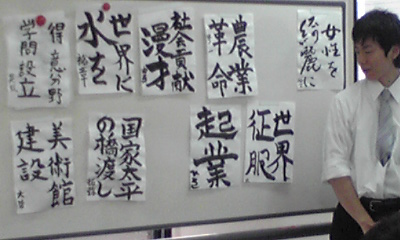 女性を
綺麗に
農業
革命
社会貢献
漫才
世界に
水を
得意分野
学問設立
世界
征服
起業
国家太平
の橋渡し
美術館
建設